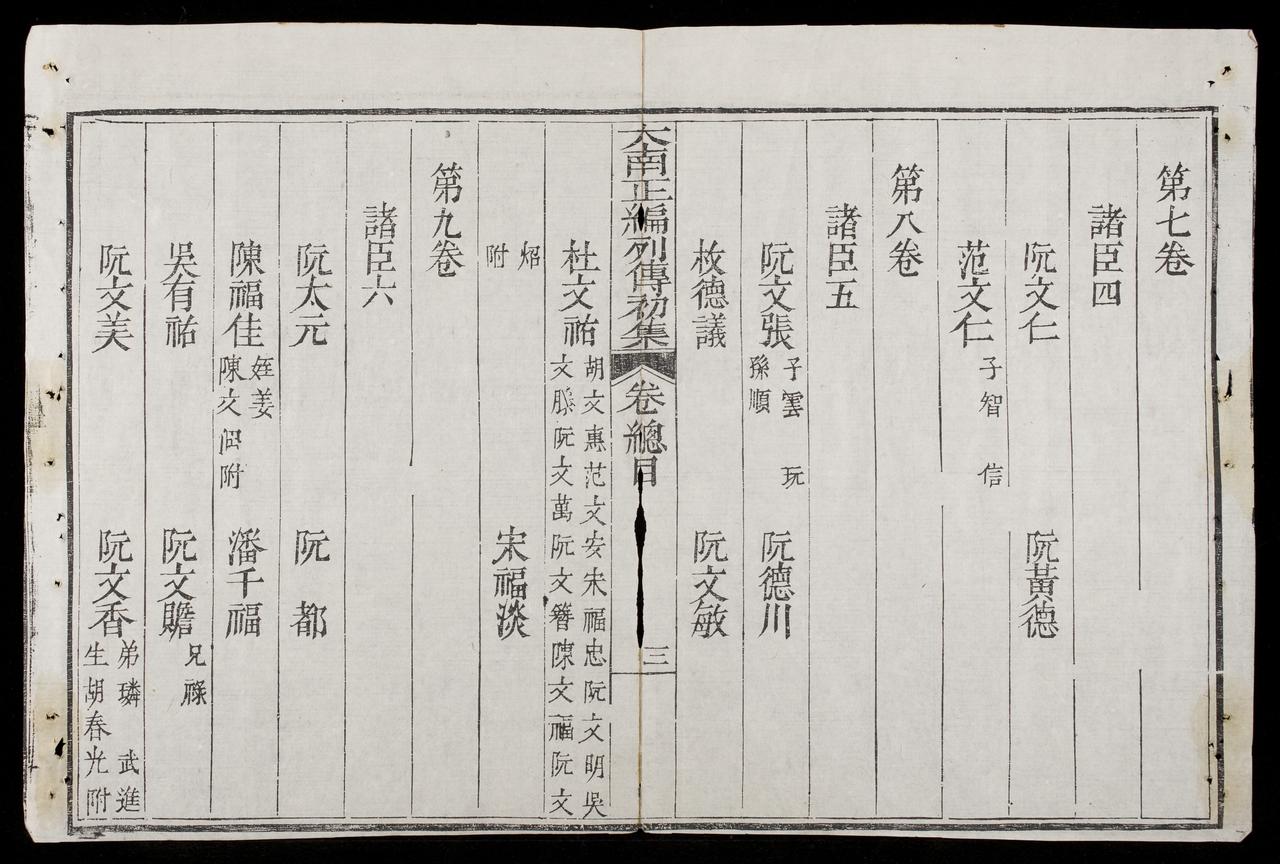 第七卷
諸臣四
阮文仁 阮黃德
范文仁 子智 信
第八卷
諸臣五
阮文張 子雲 玩 孫順 阮德川
枚德議 阮文敏
大南正編列傳初集 卷總目 三
杜文祐 胡文惠范文安宋福忠阮文明吳
文滕阮文萬阮文簪陳文福阮文
炤附 宋福淡
第九卷
諸臣六
阮太元 阮都
陳福佳 姪姜 陳文侶附 潘千福
吳有祐 阮文贍 兄祿
阮文美 阮文香 弟璘 武進
生胡春光附